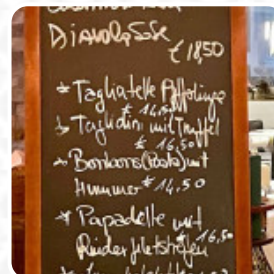 Diavolosoße
€ 18,50
* Tagliatelle Pfifferlinge
€ 14,50
Tagliolini mit Trüffel
€ 16,50
Bonbons (Pasta) mit
Hummer € 14,50
* Papadelle mit
Rinderfiletstreifen
€ 16,50